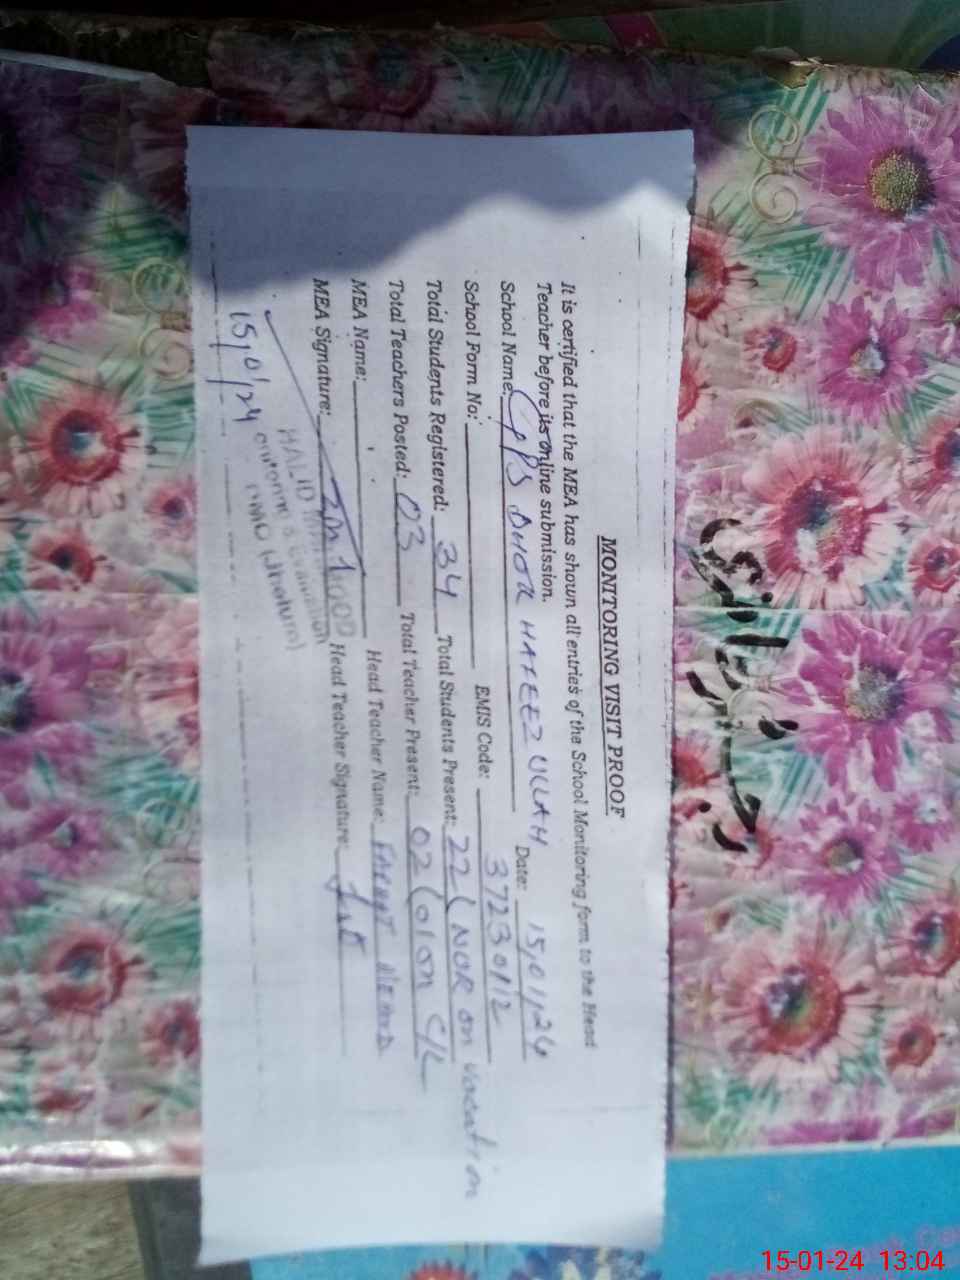 MONITORING VISIT PROOF
It is certified that the MEA has shown all entries of the School Monitoring form to the Head
Teacher before its online submission.
School Name: GPS DHOK HAFEEZ ULLAH Date: 15/01/24
School Form No: EMIS Code: 37230112
Total Students Registered: 34 Total Students Present: 22 (NOR on vacation
Total Teachers Posted: 03 Total Teacher Present: 02 (01 on C/L
MEA Name: Head Teacher Name:
MEA Signature: Head Teacher Signature:
15/01/24
15-01-24 13:04